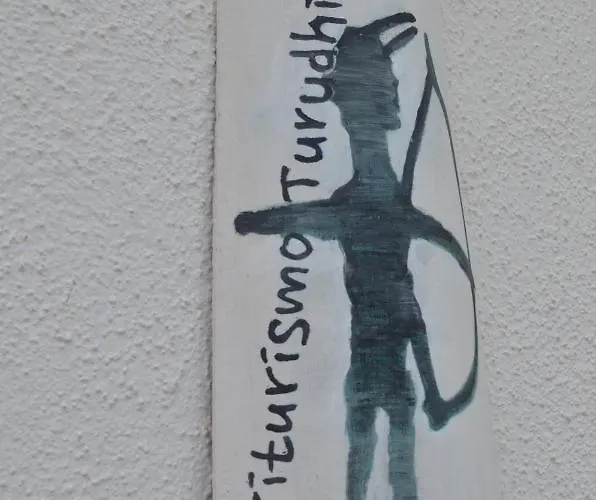 riturismo Turudhi